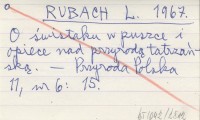 RUBACH L. 1967.
O świstaku w puszce i
opiece nad przyrodą tatrzań-
ską. — Przyroda Polska
11, nr 6: 15.